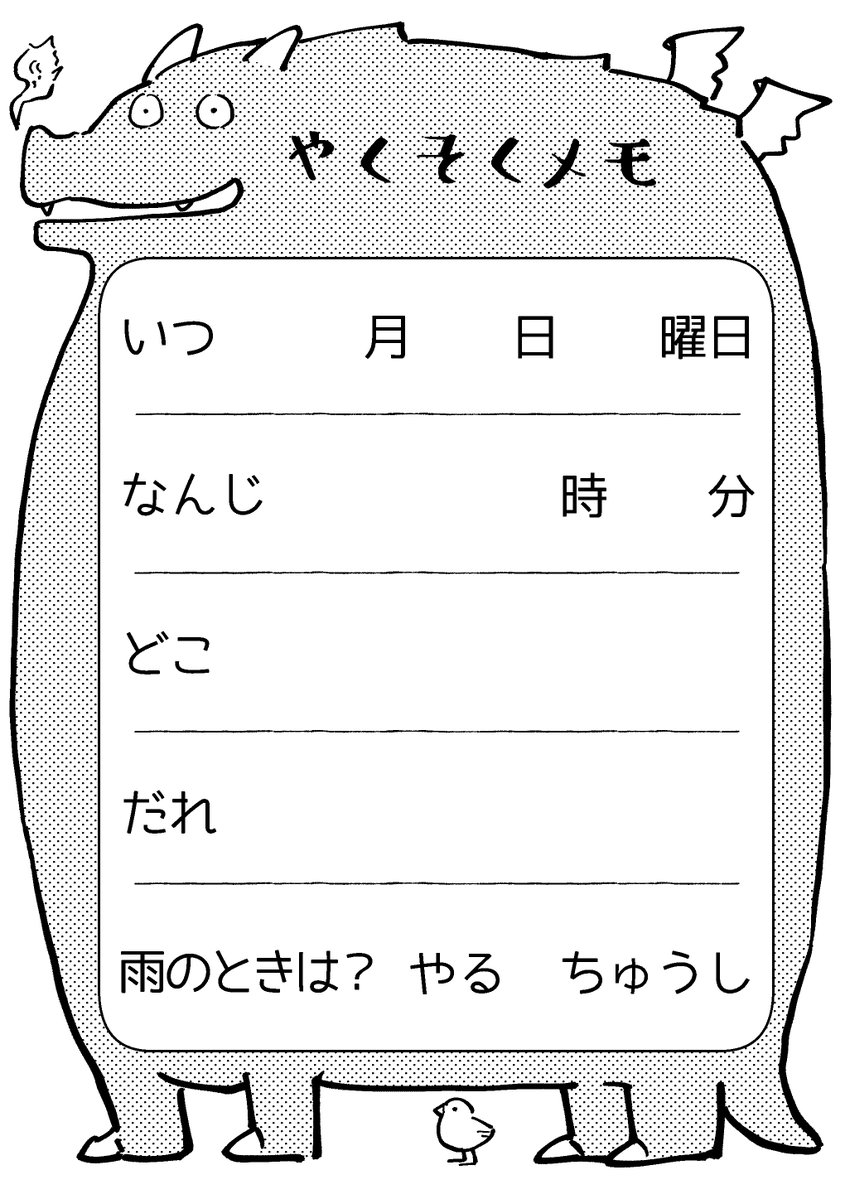 やくそくメモ
いつ 月 日 曜日
なんじ 時 分
どこ
だれ
雨のときは? やる ちゅうし